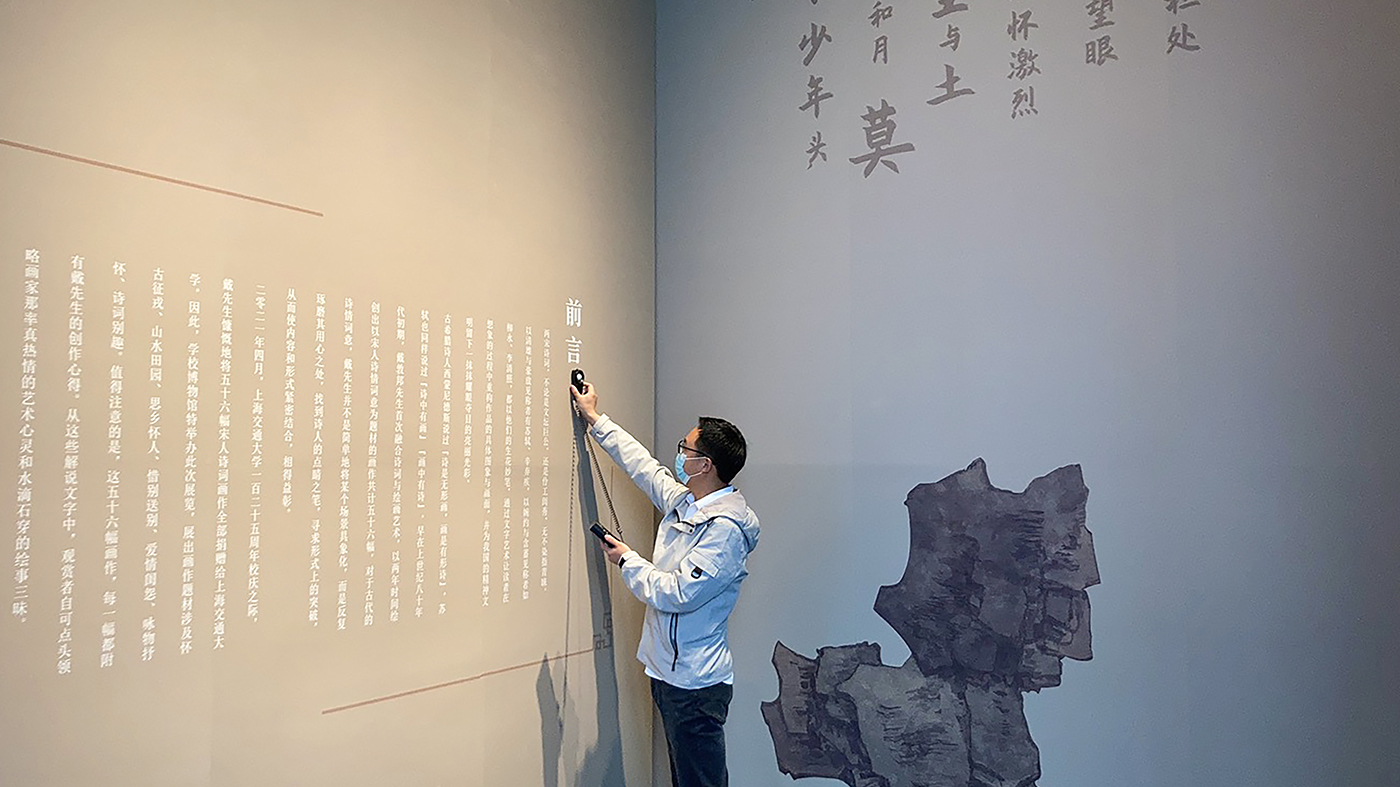 处
望眼
怀激烈
与土
和月 莫
少年头
前言
两宋诗词，不论是文坛巨公，还是伶工闾巷，无不染指青睐，
以清雄与豪放见称者有苏轼、辛弃疾，以婉约与含蓄见称者如
柳永、李清照，都以他们的生花妙笔，通过文学艺术让读者在
想象的过程中重构作品的具体图象与画面，并为我国的精神文
明留下一抹抹耀眼夺目的亮丽光彩。
古希腊诗人西蒙尼德斯说过『诗是无形画，画是有形诗』，苏
轼也同样说过『诗中有画』『画有诗』，早在上世纪八十年
代初期，戴敦邦先生首次融合诗词与绘画艺术，以两年时间绘
创出以宋人诗情词意为题材的画作共计五十六幅，对于古代的
诗情词意，戴先生并不是简单地将某个场景具象化，而是反复
琢磨其用心之处，找到诗人的点睛之笔，寻求形式上的突破，
从而使内容和形式紧密结合，相得益彰。
二零二一年四月，上海交通大学一百二十五周年校庆之际，
戴先生慷慨地将五十六幅宋人诗词画作全部捐赠给上海交通大
学。因此，学校博物馆特举办此次展览，展出画作题材涉及怀
古征戎、山水田园、思乡怀人、惜别送别、爱情闺怨、咏物抒
怀、诗词别趣。值得注意的是，这五十六幅画作，每一幅都附
有戴先生的创作心得。从这些解说文字中，观赏者自可点头领
略画家那率真热情的艺术心灵和水滴石穿的绘事三昧。